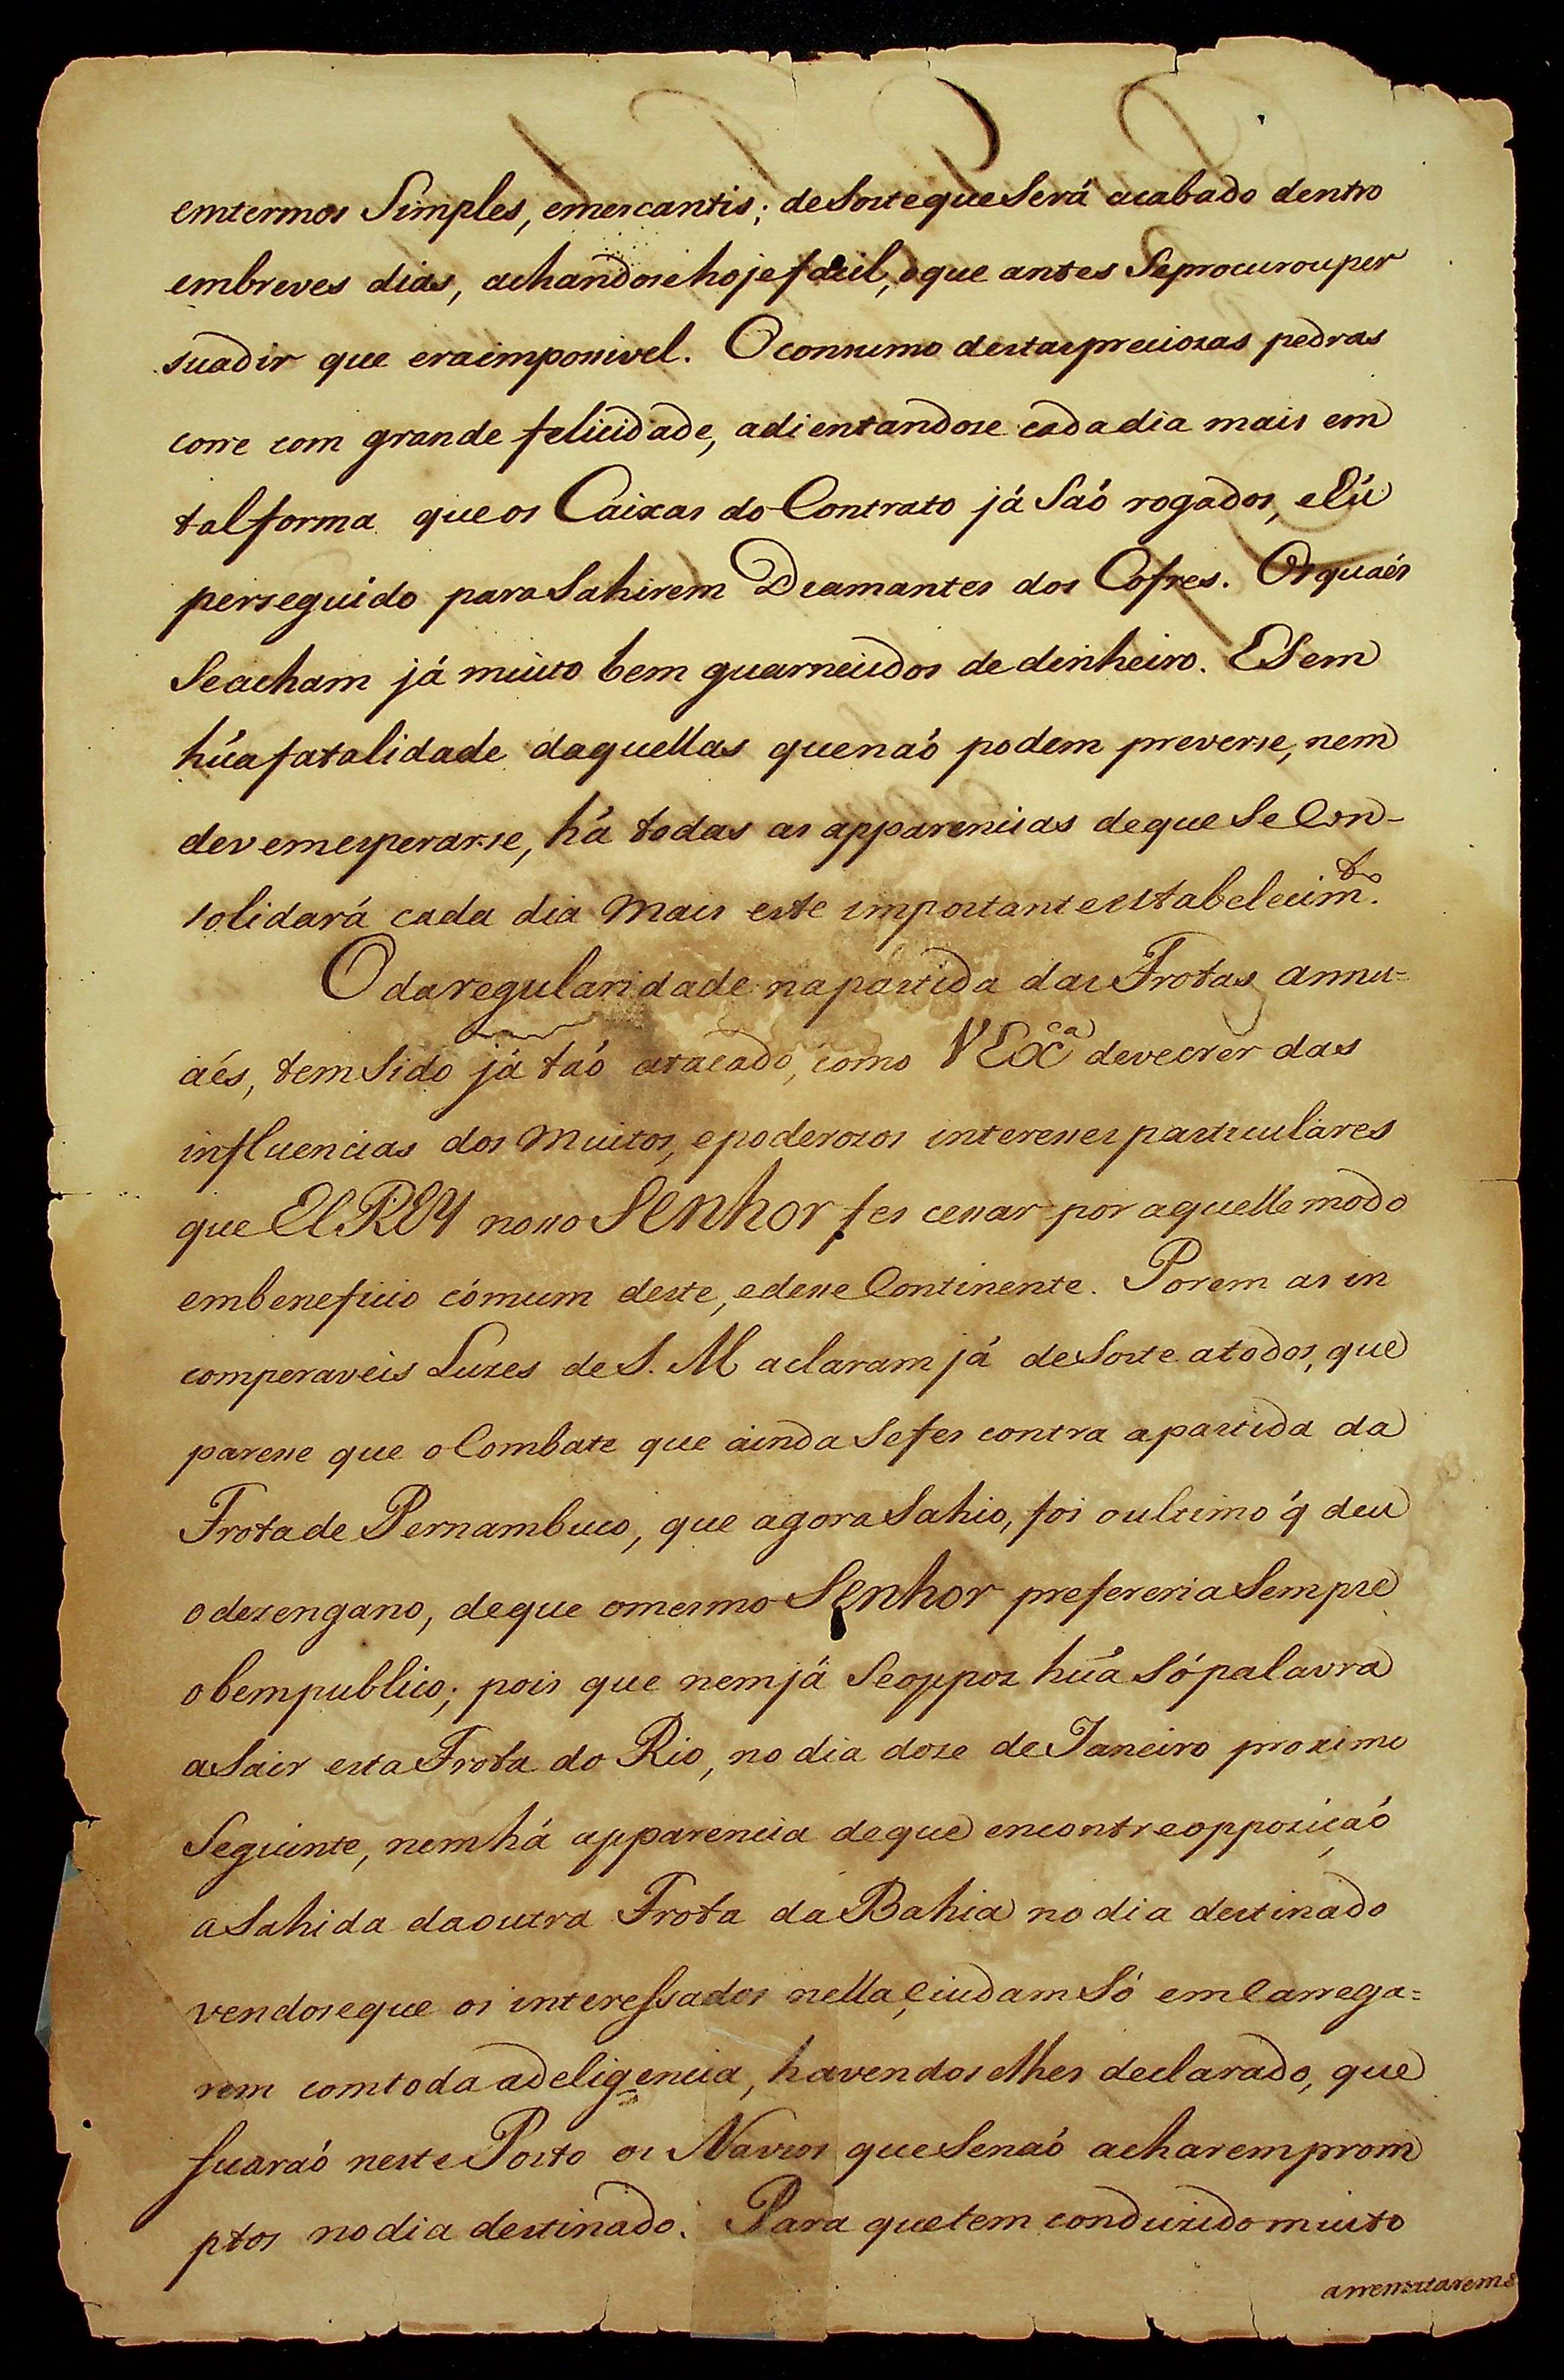 emtermos Simples, emercantis; deSorteque Será acabado dentro
embreves dias, achandose hoje facil, oque antes Seprocurouper
suadir que eraimpossivel. Oconsumo destaspreciozas pedras
corre com grande felicidade, adientandose cadadia mais em
talforma queos Caixas do Contrato já Saó rogados, eEú
perseguido paraSahirem Diamantes dos Cofres. Osquáes
Seacham já muito bem guarnecidos dedinheiro. ESem
húafatalidade daquellas quenaó podem preverse, nem
devemesperarse, há todas as apparencias deque Se Con-
solidará cada dia Mais este importante estabelecim.to
Odaregularidade napartida das Frotas annu=
áes, temSido já taó atacado, como VExca devecrer das
influencias dos Muitos, epoderozos interesses particulares
que ElREY nosso Senhor fes cessar por aquelle modo
embeneficio cómum deste, edesse Continente. Porem as in
comperaveis Luzes deS. M aclaram já deSorte atodos, que
paresse que oCombate que ainda Sefes contra apartida da
Frotade Pernambuco, que agoraSahio, foi oultimo q̃ deu
odezengano, deque omesmo Senhor prefereriaSempre
obempublico; pois que nemjá Seoppoz húa Sópalavra
aSair estaFrota do Rio, no dia doze deJaneiro proximo
Seguinte, nemhá apparencia deque encontreopposiçaó
aSahida daoutra Frota daBahia no dia destinado
vendoseque os interessados nella, Cuidam Só emCarrega=
rem comtoda adeligencia, havendoselhes declarado, que
ficaráó nestePorto os Navios queSenaó acharemprom
ptos nodia destinado. Para quetem conduzidomuito